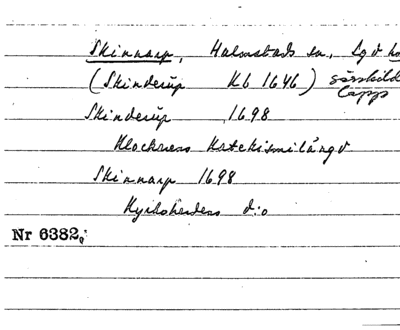 Skinnarp, Halmstads sn, Lgd
(Skinderup Kb 1646) särskild
lapp
Skinderup 1698
Klockrens Katekismilängd
Skinnarp 1698
Kyrkoherdens d:o
Nr 6382,